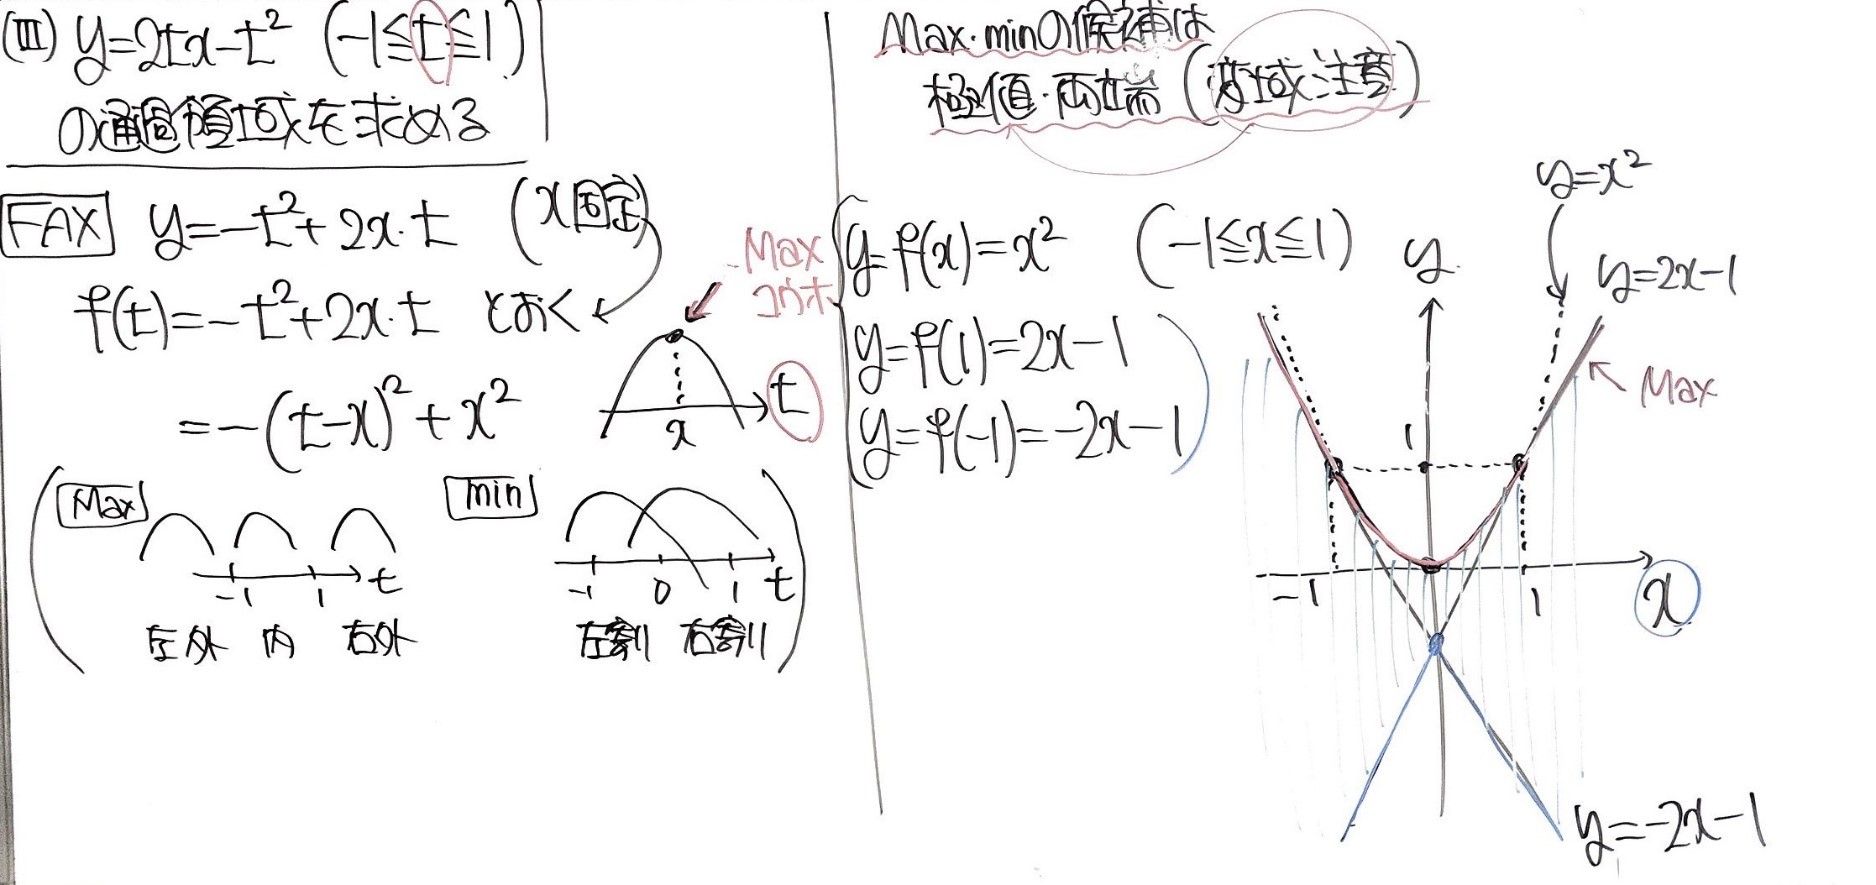 (III) y=2tx-t² (-1≦t≦1)
の通過領域を求める
FAX y=-t²+2x・t (x固定)
f(t)=-t²+2x・t とおく
=-(t-x)²+x²
Max
コウホ
x
t
Max
-1 1 t
左外 内 右外
min
-1 0 1 t
左割 右割
Max・minの候補は
極値・両端 (変域注意)
y=f(x)=x² (-1≦x≦1)
y=f(1)=2x-1
y=f(-1)=-2x-1
y=x²
y
y=2x-1
Max
1
-1 1 x
y=-2x-1